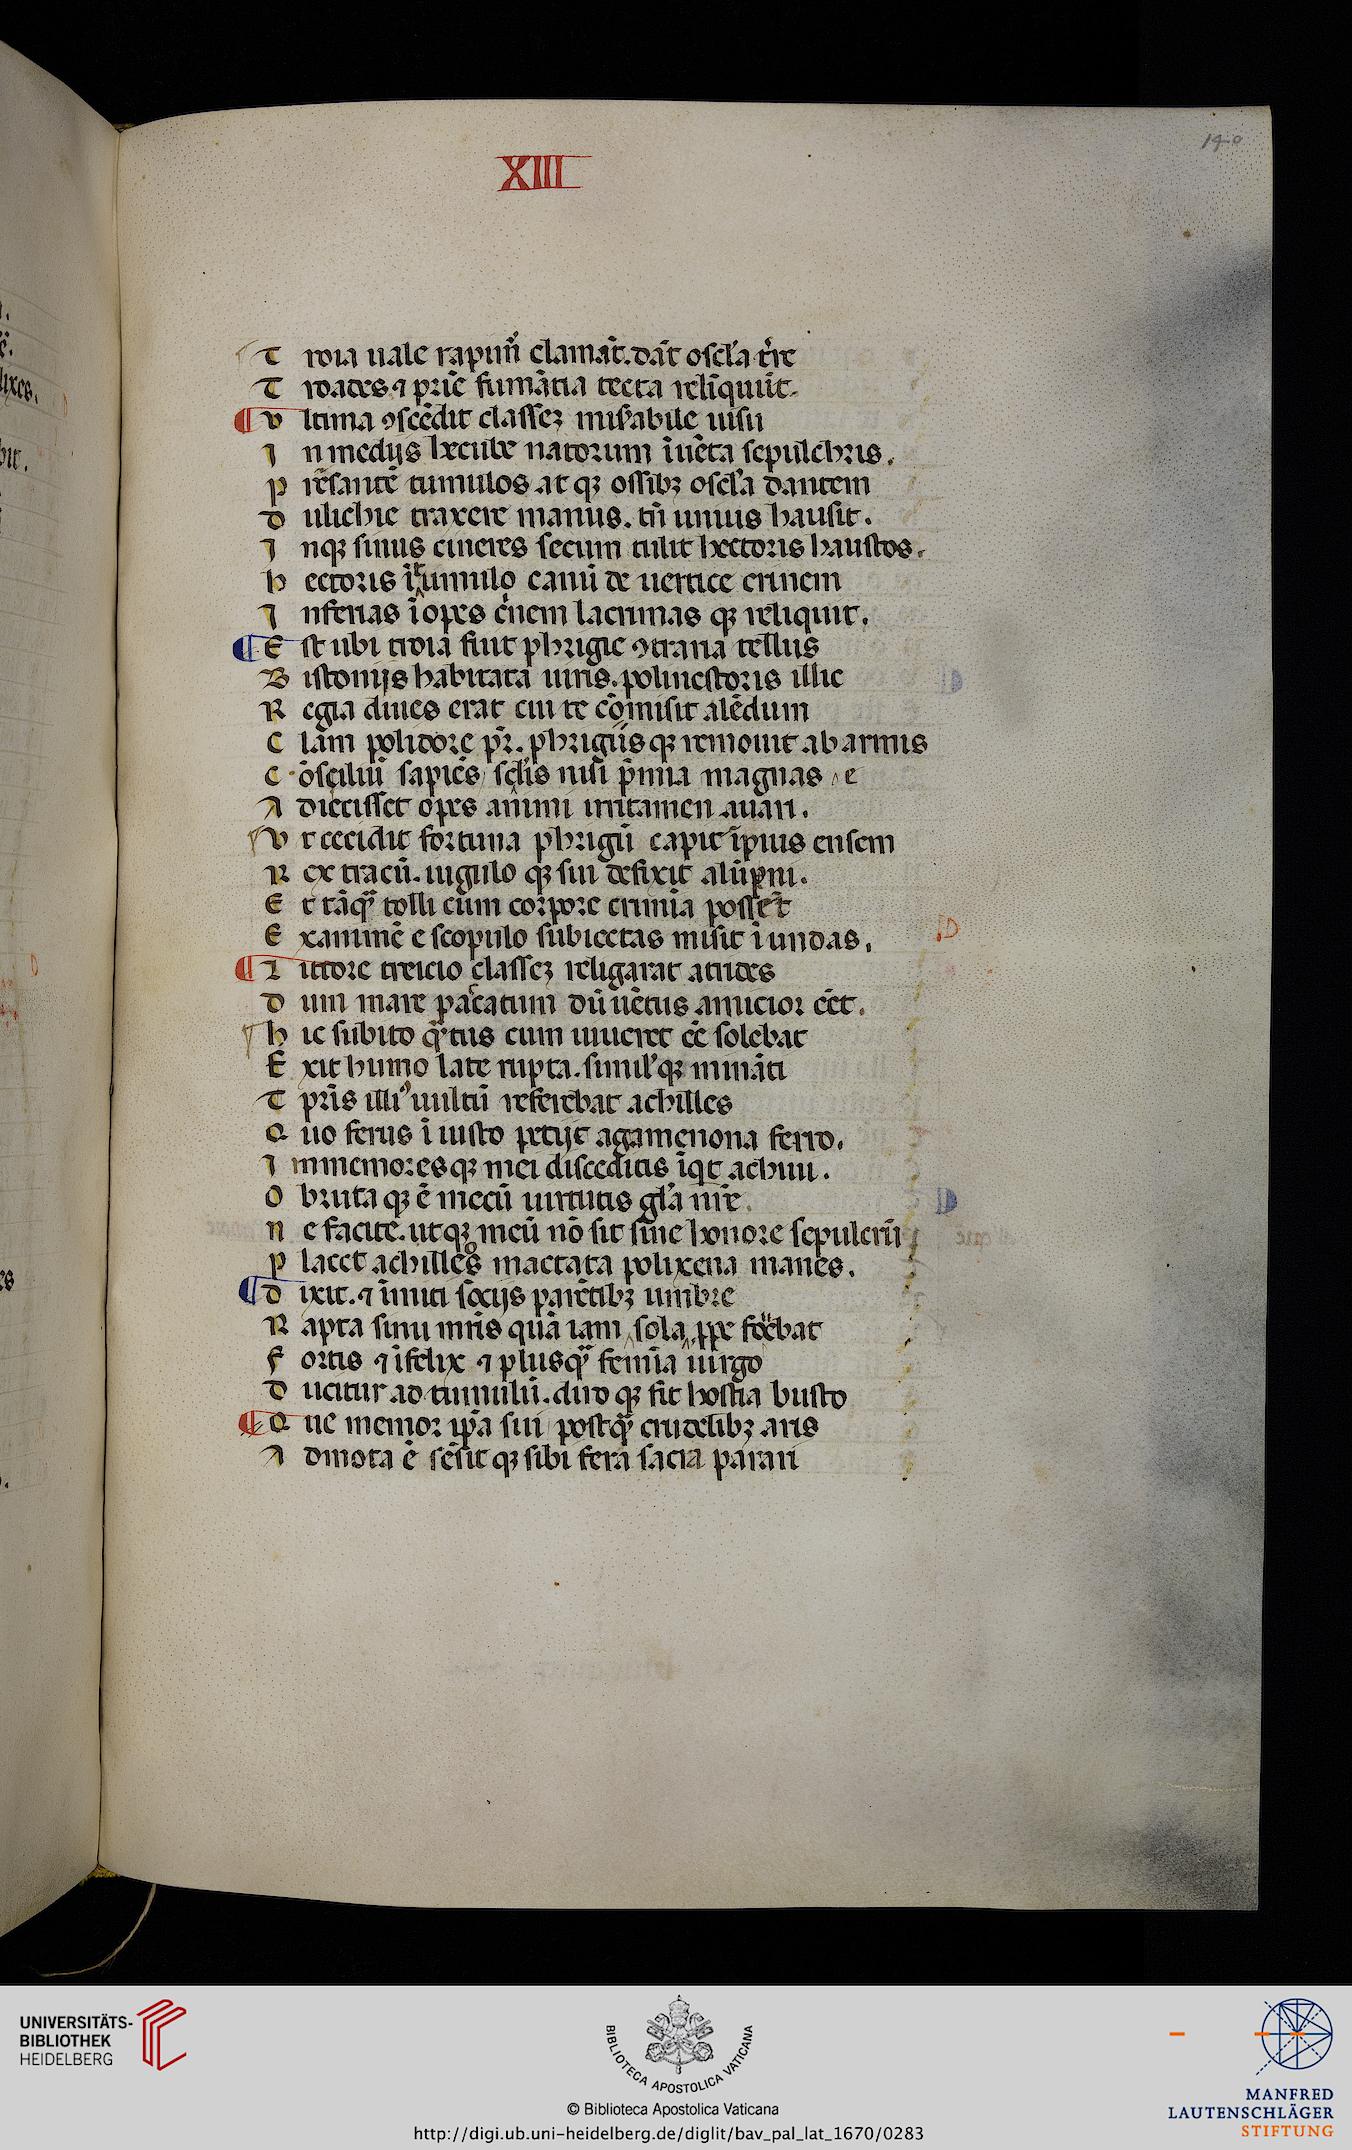 140
XIII
T roia uale rapimur̄ clamāt. dāt oscl'a t̄re
T roades ⁊ p̄rie fumātia tecta relīquūt.
V ltima ꝯscēdit classeꝫ mis̾abile uisu
I n medijs hecube natorum īuēta sepulchris.
P rēsantē tumulos at qꝫ ossibꝫ oscl'a dantem
D ulichie traxere manus. tn̄ unius hausit.
I nqꝫ sinus cineres secum tulit hectoris haustos.
H ectoris ī tumulo canū de uertice crinem
I nferias īopes c̄nem lacrimas qꝫ reliquit.
E st ubi troia fuit phrigie ꝯtraria tellus
B istonijs habitata uiris. polinestoris illic
R egia diues erat cui te cōmisit alēdum
C lam polidore pr̄. phrigiis qꝫ remouit ab armis
C ōsciliū sapiēs scl'is nisi p̄mia magnas e
A diecisset opes animi irritamen auari.
V t cecidit fortuna phrigū capit īpius ensem
R ex tracū. iugulo qꝫ sui defixit alūpni.
E t tāqᷓ tolli cum corpore crimīa possēt
E xanimē e scopulo subiectas misit ī undas.
L ittore treicio classeꝫ religarat atrides
D um mare pacatum dū uētus amicior eēt.
H ic subito qᷓtus cum uiueret eē solebat
E xit humo late rupta. simil'qꝫ mināti
T pr̄is illi᷒ uultū referebat achilles
Q uo ferus ī iusto petijt agamenona ferro.
I mmemores qꝫ mei disceditis īqt achiui.
O bruta qꝫ ē mecū uirtutis gl'a nr̄e.
N e facite. utqꝫ meū nō sit sine honore sepulcrū
P lacet achilleos mactata polixena manes.
D ixit. ⁊ īmiti socijs parētibꝫ umbre
R apta sinu mr̄is quā iam sola ꝓpe fouebat
F ortis ⁊ īfelix ⁊ plusqᷓ femīa uirgo
D ucitur ad tumulū. diro qꝫ fit hostia busto
Q ue memor ip̄a sui postqᷓ crudelibꝫ aris
A dmota ē sēsit qꝫ sibi fera sacra parari
UNIVERSITÄTS-
BIBLIOTHEK
HEIDELBERG
BIBLIOTECA APOSTOLICA VATICANA
© Biblioteca Apostolica Vaticana
http://digi.ub.uni-heidelberg.de/diglit/bav_pal_lat_1670/0283
MANFRED
LAUTENSCHLÄGER
STIFTUNG